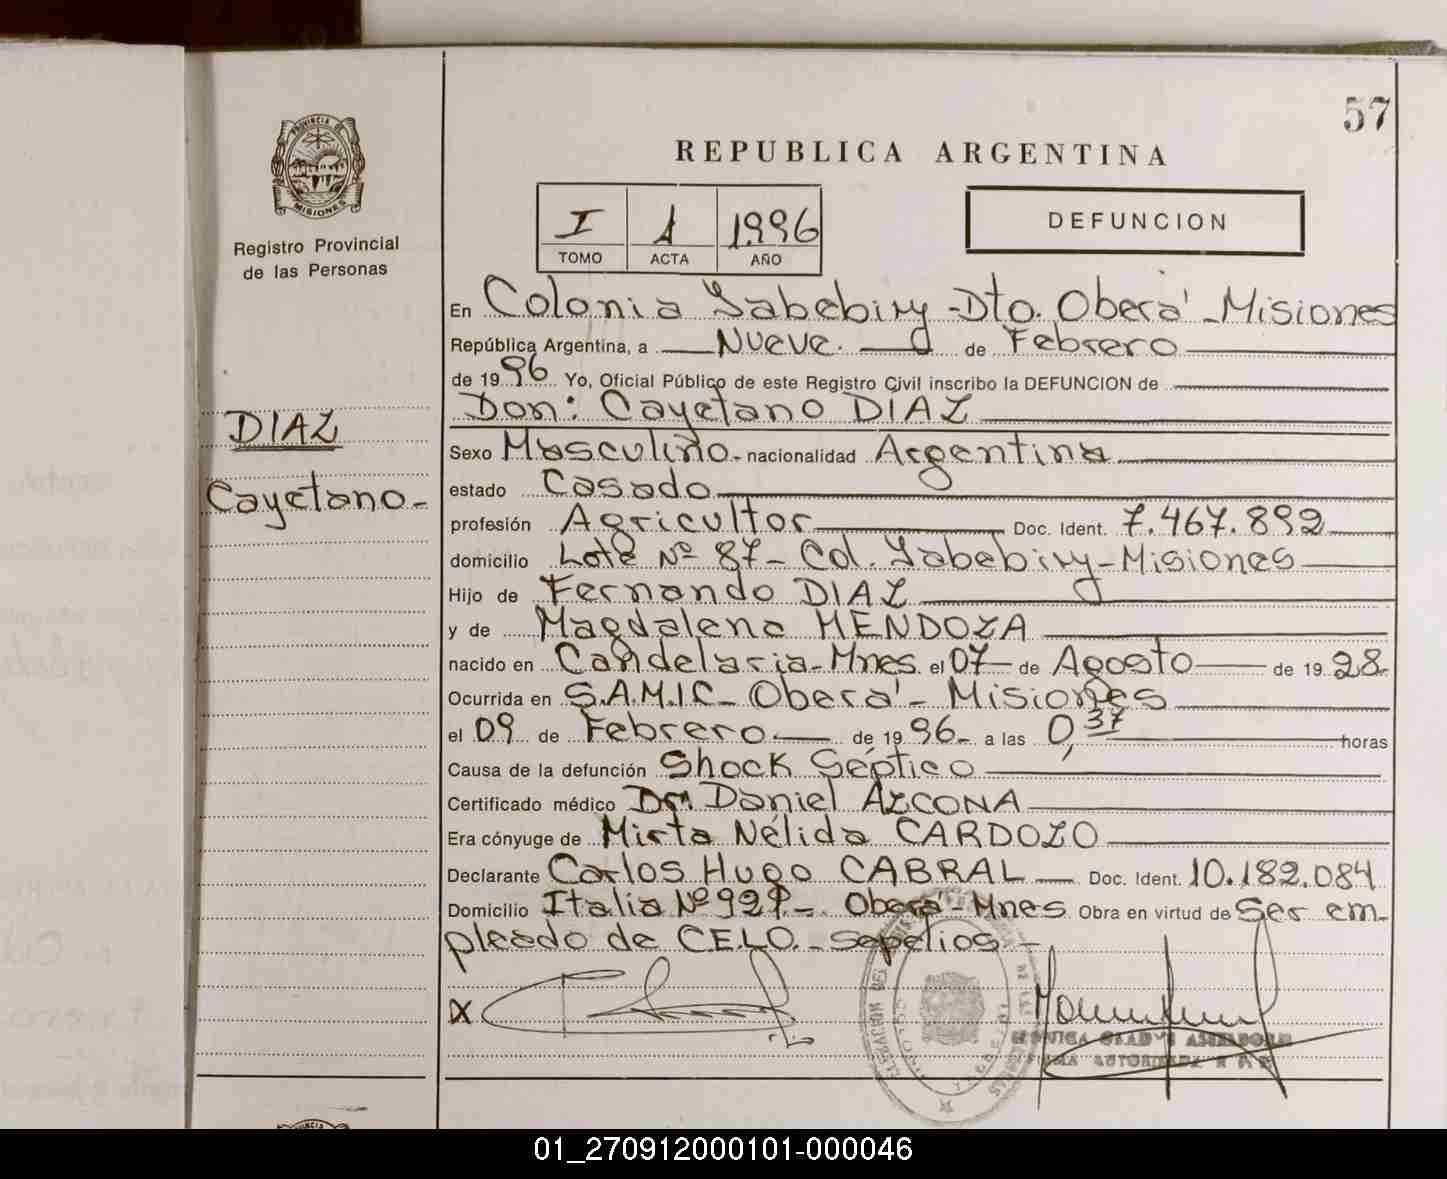 57
REPUBLICA ARGENTINA
PROVINCIA DE
MISIONES
Registro Provincial
de las Personas
I A 1996
TOMO ACTA AÑO
DEFUNCION
En Colonia Yabebiry - Dto. Oberá - Misiones
República Argentina, a Nueve. de Febrero
de 1996 Yo, Oficial Público de este Registro Civil inscribo la DEFUNCION de
Don: Cayetano DIAZ
DIAZ
Cayetano -
Sexo Masculino - nacionalidad Argentina
estado Casado
profesión Agricultor Doc. Ident. 7.467.892
domicilio Lote Nº 87 - Col. Yabebiry - Misiones
Hijo de Fernando DIAZ
y de Magdalena MENDOZA
nacido en Candelaria - Mnes. el 07 de Agosto de 1928.
Ocurrida en S.A.M.I.C - Oberá - Misiones
el 09 de Febrero de 1996 - a las 0,37 horas
Causa de la defunción Shock Séptico
Certificado médico Dr. Daniel AZCONA
Era cónyuge de Mirta Nélida CARDOZO
Declarante Carlos Hugo CABRAL Doc. Ident. 10.182.084
Domicilio Italia Nº 929 - Oberá - Mnes Obra en virtud de Ser em-
pleado de C.E.L.O. - sepelios -
X
01_270912000101-000046